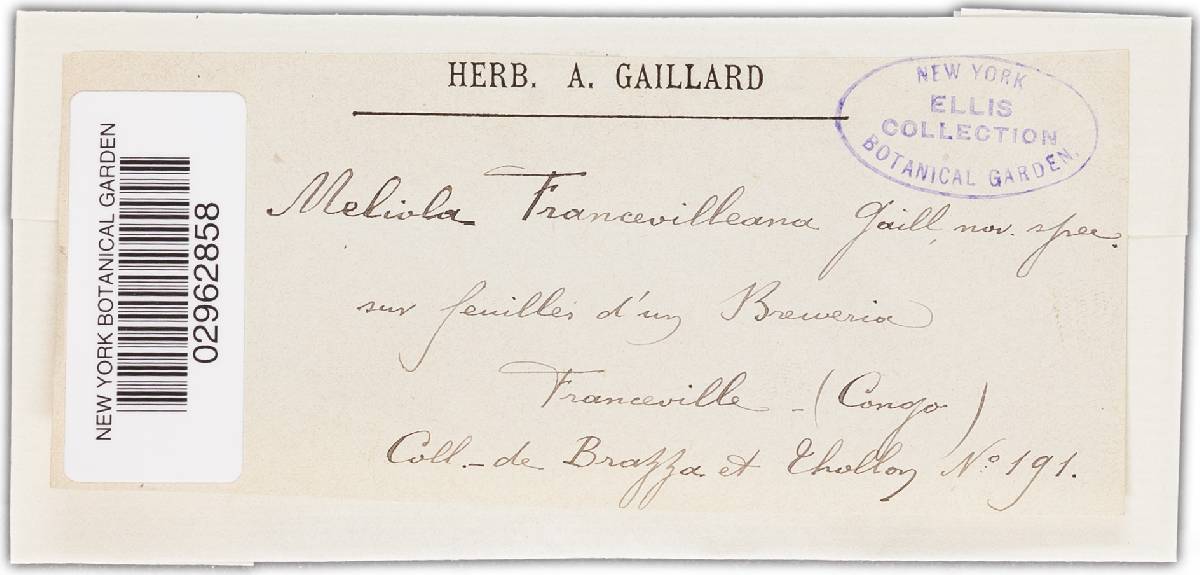 HERB. A. GAILLARD
NEW YORK
ELLIS
COLLECTION
BOTANICAL GARDEN.
NEW YORK BOTANICAL GARDEN
02962858
Meliola Francevilleana Gaill. nov. spec.
sur feuilles d'un Breweria
Franceville - (Congo)
Coll. - de Brazza et Thollon No 191.